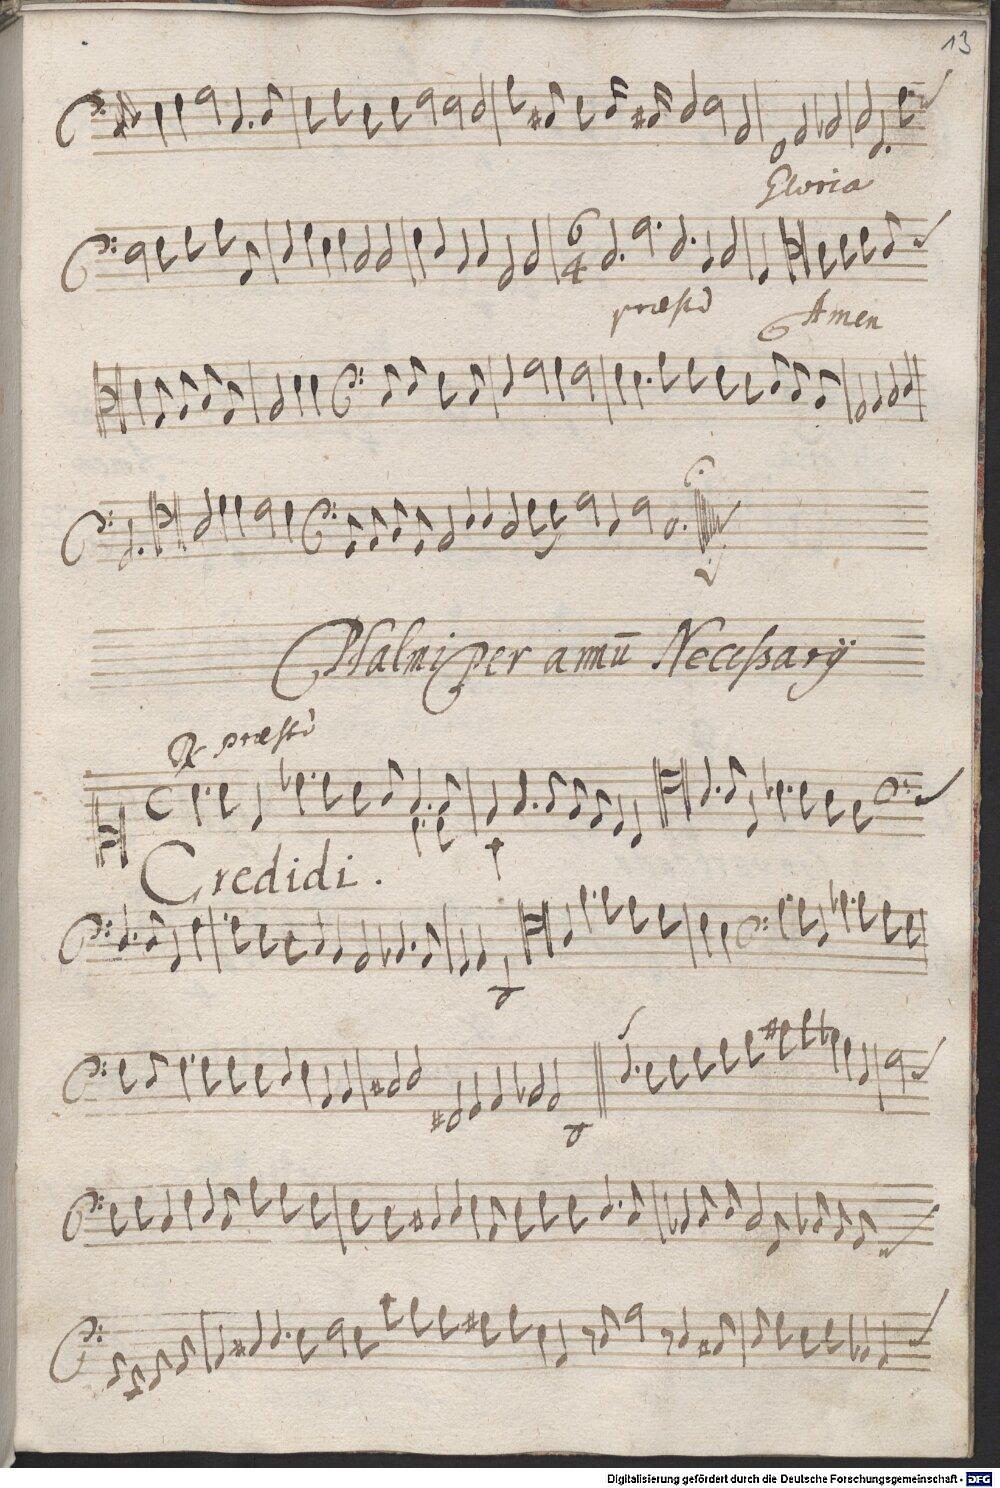 13
Gloria
6
4
præstò
Amen
Psalmi per annū Necessarÿ
præstò
Credidi.
Digitalisierung gefördert durch die Deutsche Forschungsgemeinschaft - DFG